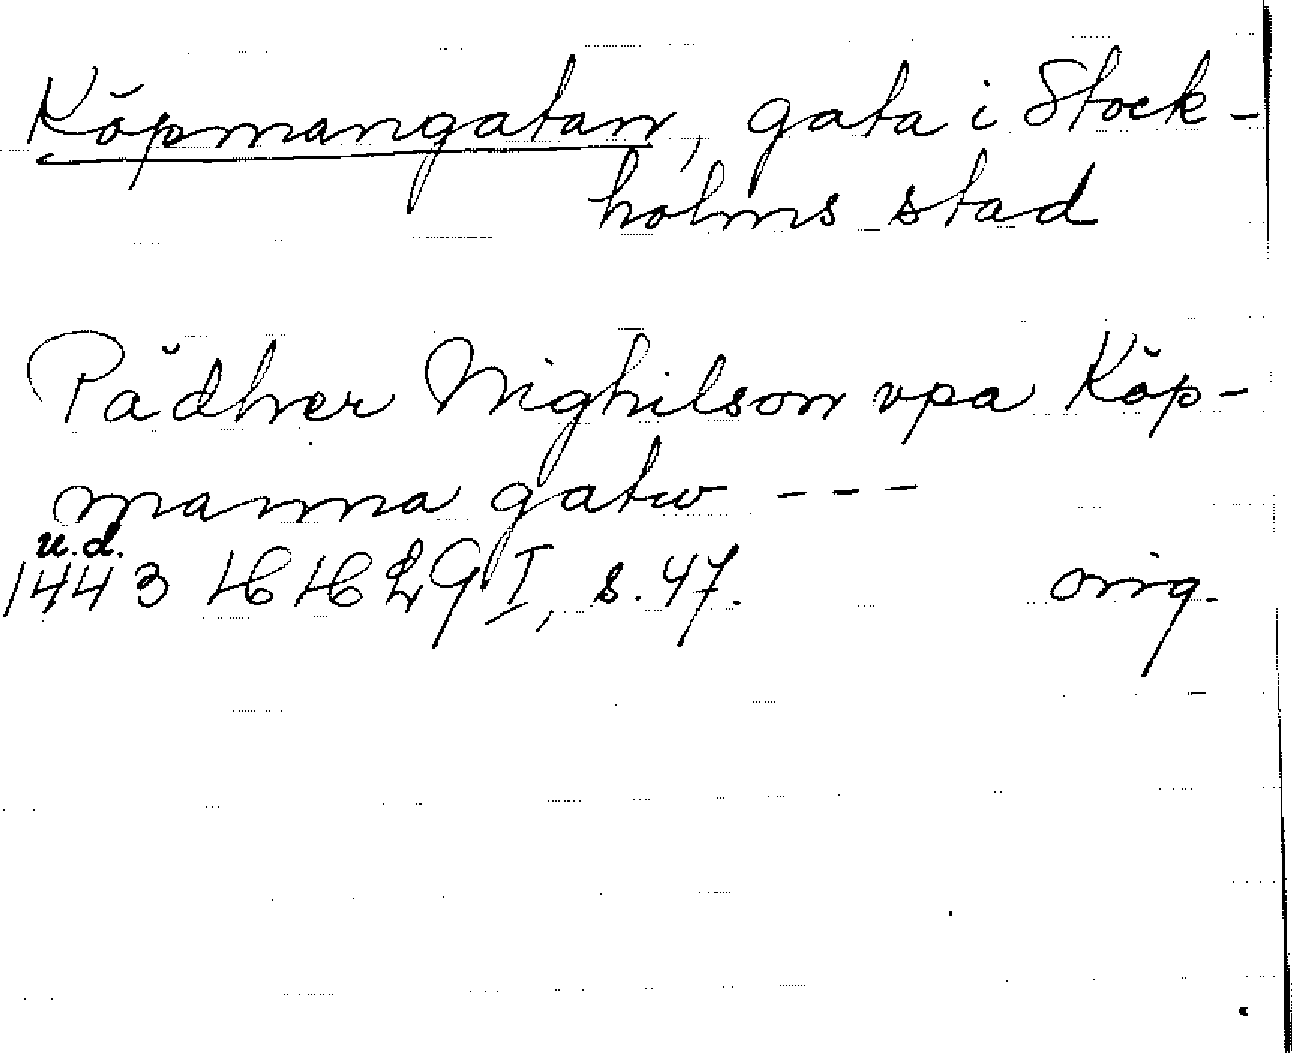 Köpmangatan, gata i Stock-
holms stad
Pädher Nighilson vpa Köp-
manna gatw ---
u.d.
1443 HH 29 I, s. 47. orig.